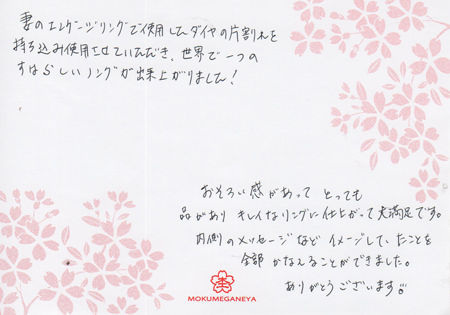 妻のエンゲージリングで使用したダイヤの片割れを
持ち込み使用させていただき、世界で一つの
すばらしいリングが出来上がりました!
おそろい感があって とっても
品があり キレイなリングに仕上がって大満足です。
内側のメッセージなど イメージしていたことを
全部 かなえることができました。
ありがとうございます!!
MOKUMEGANEYA